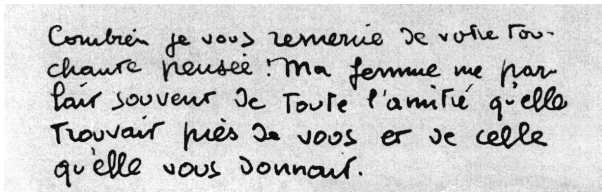 Combien je vous remercie de votre tou-
chante pensée ! Ma femme me par-
lait souvent de toute l'amitié qu'elle
trouvait près de vous et de celle
qu'elle vous donnait.